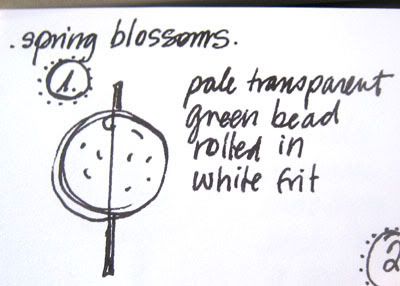 .spring blossoms.
1.
pale transparent
green bead
rolled in
white frit
2